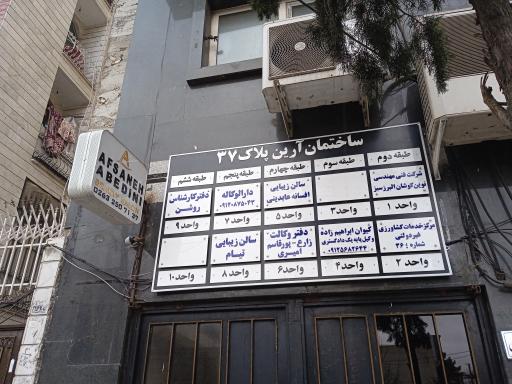 ساختمان آرین پلاک ۳۷
طبقه دوم
شرکت فنی مهندسی
نوین کوشان البرز سبز
واحد ۱
مرکز خدمات کشاورزی
غیر دولتی
شماره ۳۶
واحد ۲
طبقه سوم
واحد ۳
کیوان ابراهیم زاده
وکیل پایه یک دادگستری
۰۹۱۲۵۶۸۲۶۴۴
واحد ۴
طبقه چهارم
سالن زیبایی
افسانه عابدینی
واحد ۵
دفتر وکالت
زارع - پورقاسم
امیری
واحد ۶
طبقه پنجم
دارالوکاله
۰۹۱۲۰۸۷۵۰۴۲
واحد ۷
سالن زیبایی
تیام
واحد ۸
طبقه ششم
دفتر کارشناس
روشن
واحد ۹
واحد ۱۰
AFSANEH
ABEDINI
0263 250 71 37